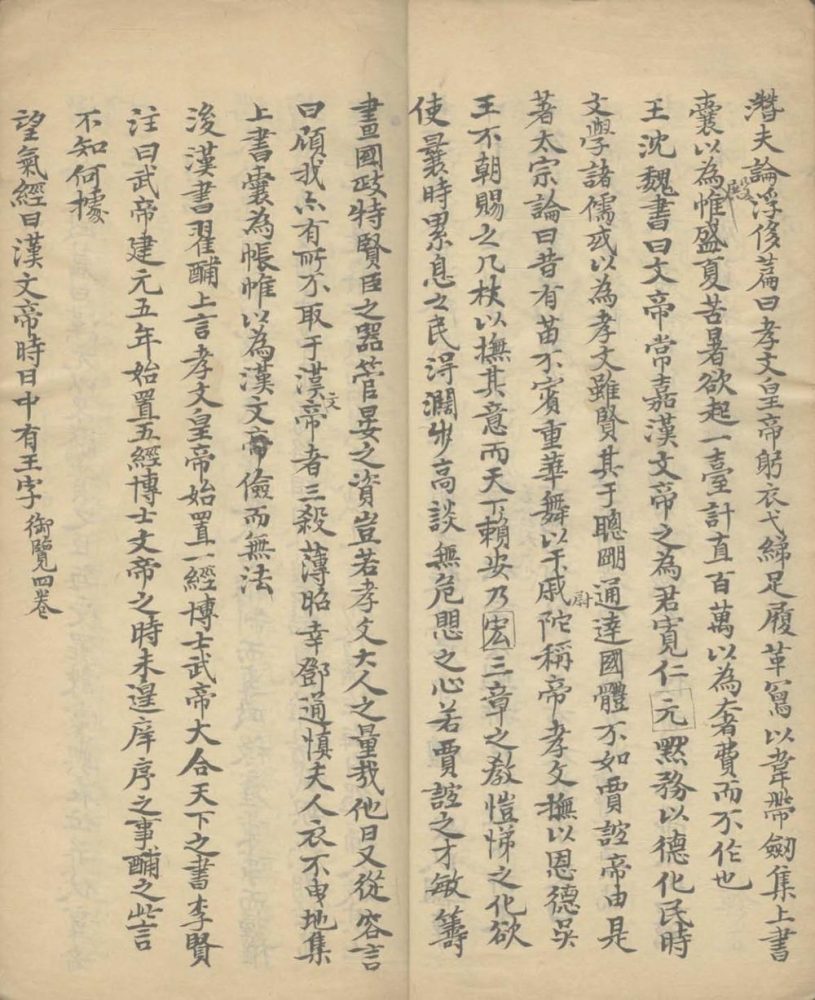 潛夫論浮侈篇曰孝文皇帝躬衣弋綈足履革舄以韋帶劒集上書
囊以為殿帷盛夏苦暑欲起一臺計直百萬以為奢費而不作也
王沈魏書曰文帝常嘉漢文帝之為君寛仁元黙務以德化民時
文學諸儒或以為孝文雖賢其于聰明通達國體不如賈誼帝由是
著太宗論曰昔有苗不賓重華舞以干戚尉陀稱帝孝文撫以恩德吳
王不朝賜之几杖以撫其意而天下賴安乃宏三章之教愷悌之化欲
使曩時累息之民得濶步高談無危懼之心若賈誼之才敏籌
畫國政特賢臣之器管晏之資豈若孝文大人之量哉他日又從容言
曰顧我亦有所不取于漢文帝者三殺薄昭幸鄧通慎夫人衣不曳地集
上書囊為帳帷以為漢文帝儉而無法
後漢書翟酺上言孝文皇帝始置一經博士武帝大合天下之書李賢
注曰武帝建元五年始置五經博士文帝之時未遑庠序之事酺之此言
不知何據
望氣經曰漢文帝時日中有王字 御覽四卷